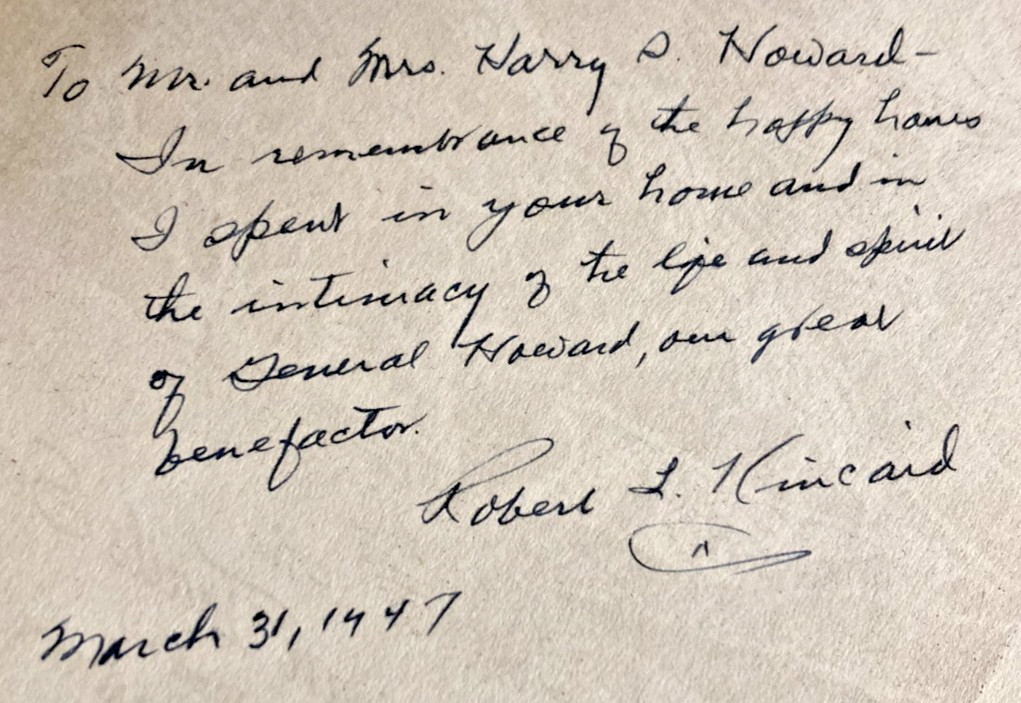 To Mr. and Mrs. Harry S. Howard-
In remembrance of the happy hours
I spent in your home and in
the intimacy of the life and spirit
of General Howard, our great
benefactor.
Robert L. Kincaid
March 31, 1947